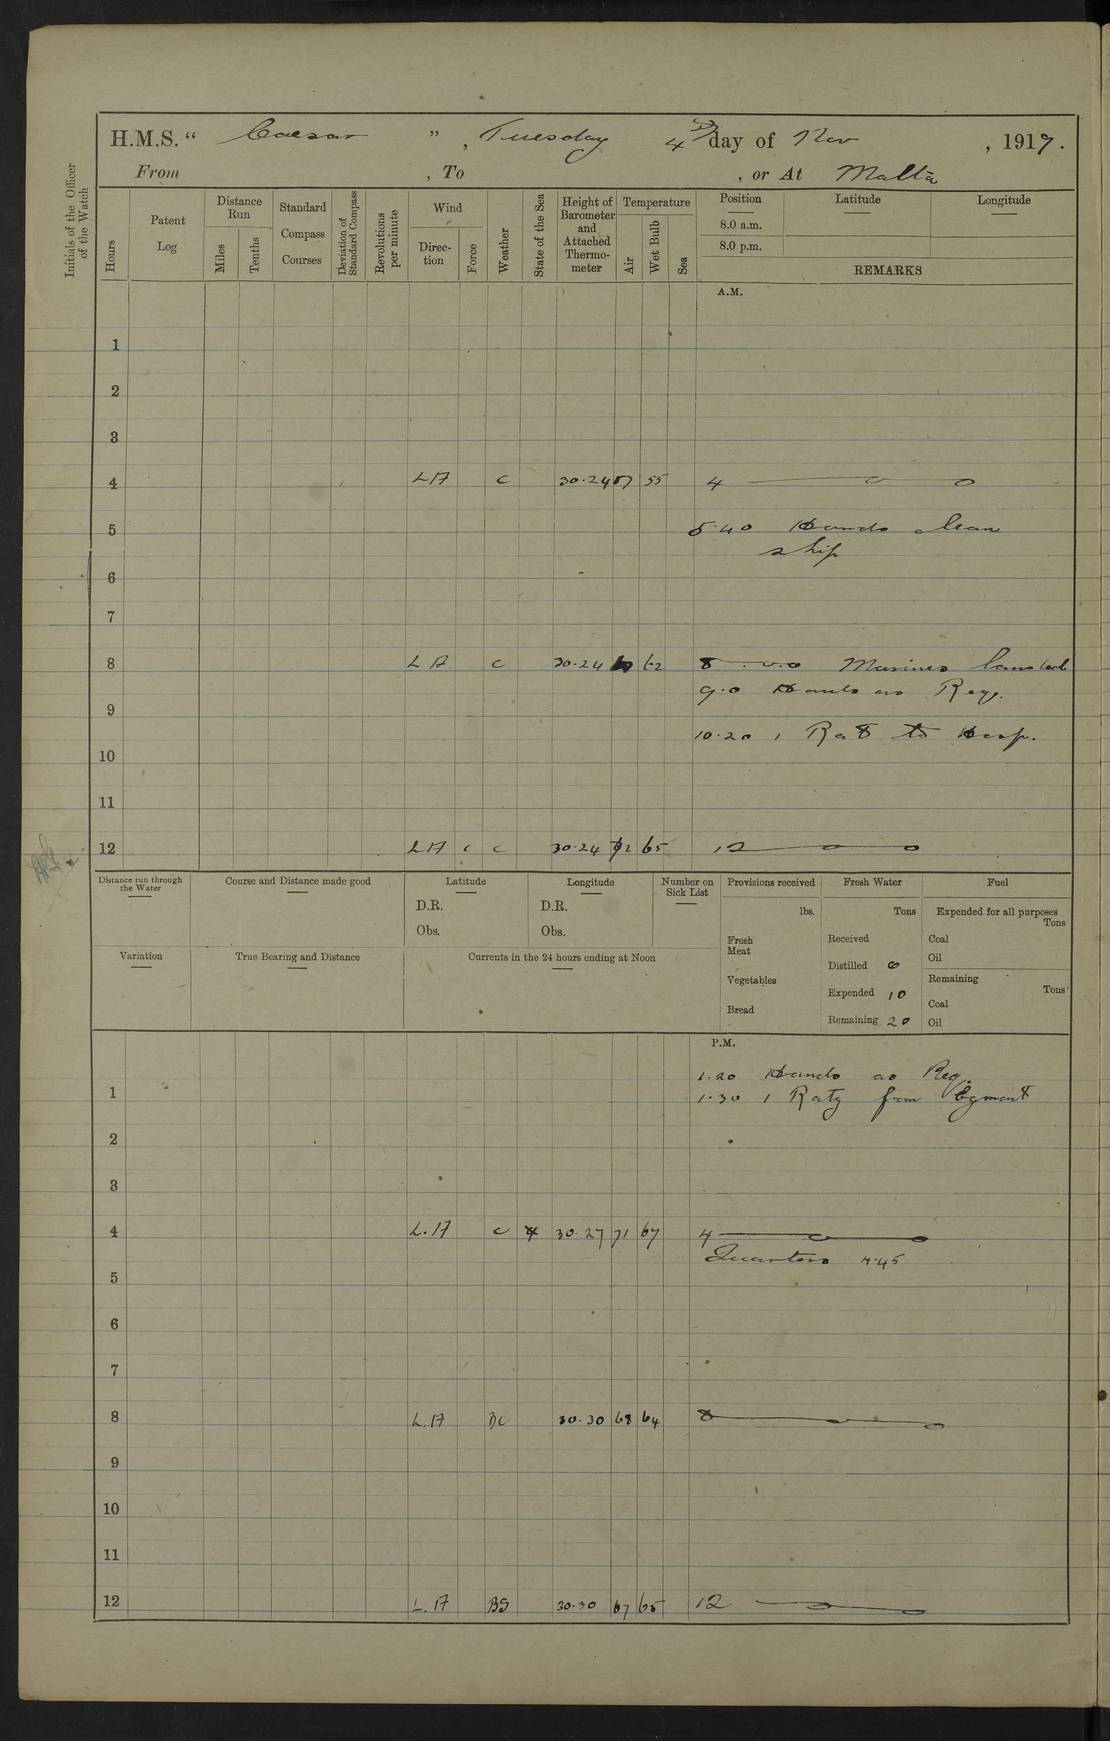 H.M.S. “ Caesar ”, Tuesday 4th day of Nov , 1919.
From , To , or At Malta
Initials of the Officer of the Watch
Hours
Patent Log
Distance Run
Miles
Tenths
Standard Compass Courses
Deviation of Standard Compass
Revolutions per minute
Wind
Direction
Force
Weather
State of the Sea
Height of Barometer and Attached Thermometer
Temperature
Air
Wet Bulb
Sea
Position
Latitude
Longitude
8.0 a.m.
8.0 p.m.
REMARKS
A.M.
1
2
3
4 LA C 30·24 55 4
5 5·40 Hands clean
ship
6
7
8 LA C 30·24 62 8 Marines landed
9·0 Hands as Req.
9
10·20 1 Rat to Hosp.
10
11
12 LA C 30·24 72 65 12
Distance run through the Water
Course and Distance made good
Latitude
D.R.
Obs.
Longitude
D.R.
Obs.
Number on Sick List
Provisions received
lbs.
Fresh Meat
Vegetables
Bread
Fresh Water
Tons
Received
Distilled
Expended 10
Remaining 20
Fuel
Expended for all purposes
Tons
Coal
Oil
Remaining
Tons
Coal
Oil
Variation
True Bearing and Distance
Currents in the 24 hours ending at Noon
P.M.
1·20 Hands as Req.
1 1·30 1 Ratg from Egmont
2
3
4 L.A C 30·27 71 67 4
Quarters 4·45
5
6
7
8 L.A BC 30·30 68 64 8
9
10
11
12 L.A BS 30·30 67 65 12